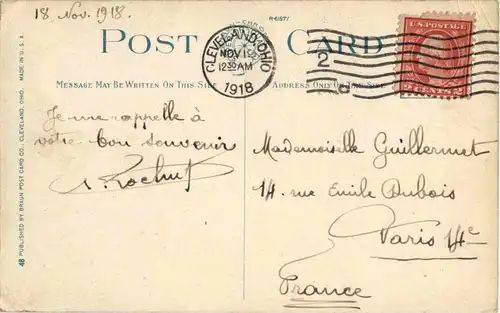 18 Nov. 1918.
R-61577
POST CARD
CLEVELAND, OHIO
NOV 19
12 30 AM
1918
2
U.S. POSTAGE
MESSAGE MAY BE WRITTEN ON THIS SIDE
ADDRESS ONLY ON THIS SIDE
Je me rappelle à
votre bon souvenir
Mademoiselle Guillermet
14. rue Emile Dubois
Paris 14e
France
48 PUBLISHED BY BRAUN POST CARD CO., CLEVELAND, OHIO. MADE IN U.S.A.